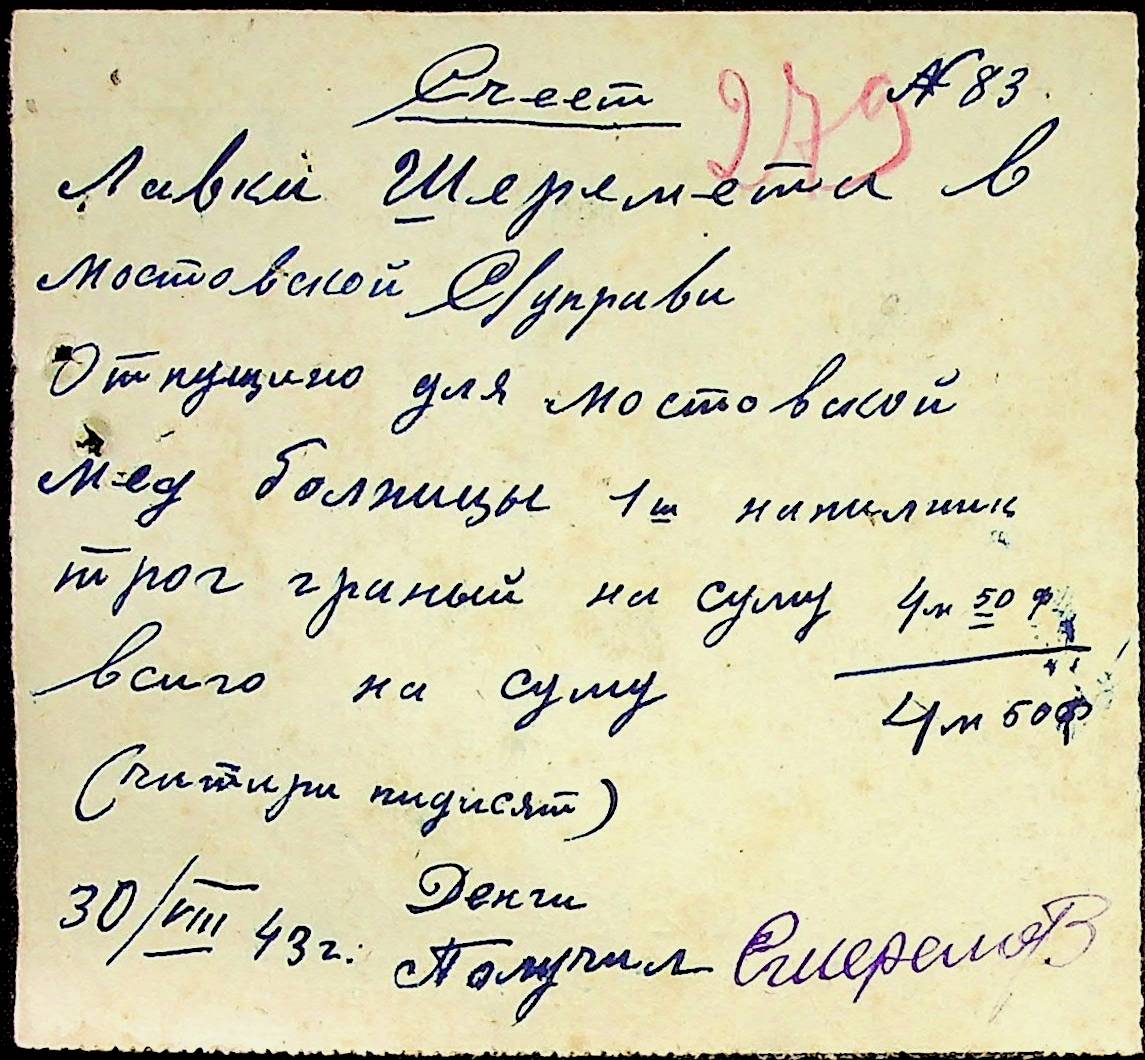 Счеет 279 № 83
Лавки Шеремета в
мостовской С/управи
Отпущино для мостовской
мед болницы 1ш напилник
трог граный на суму 4м 50 ф
всиго на суму
4м 50ф
(читири пидисят)
30/VIII 43г. Денги
Получил